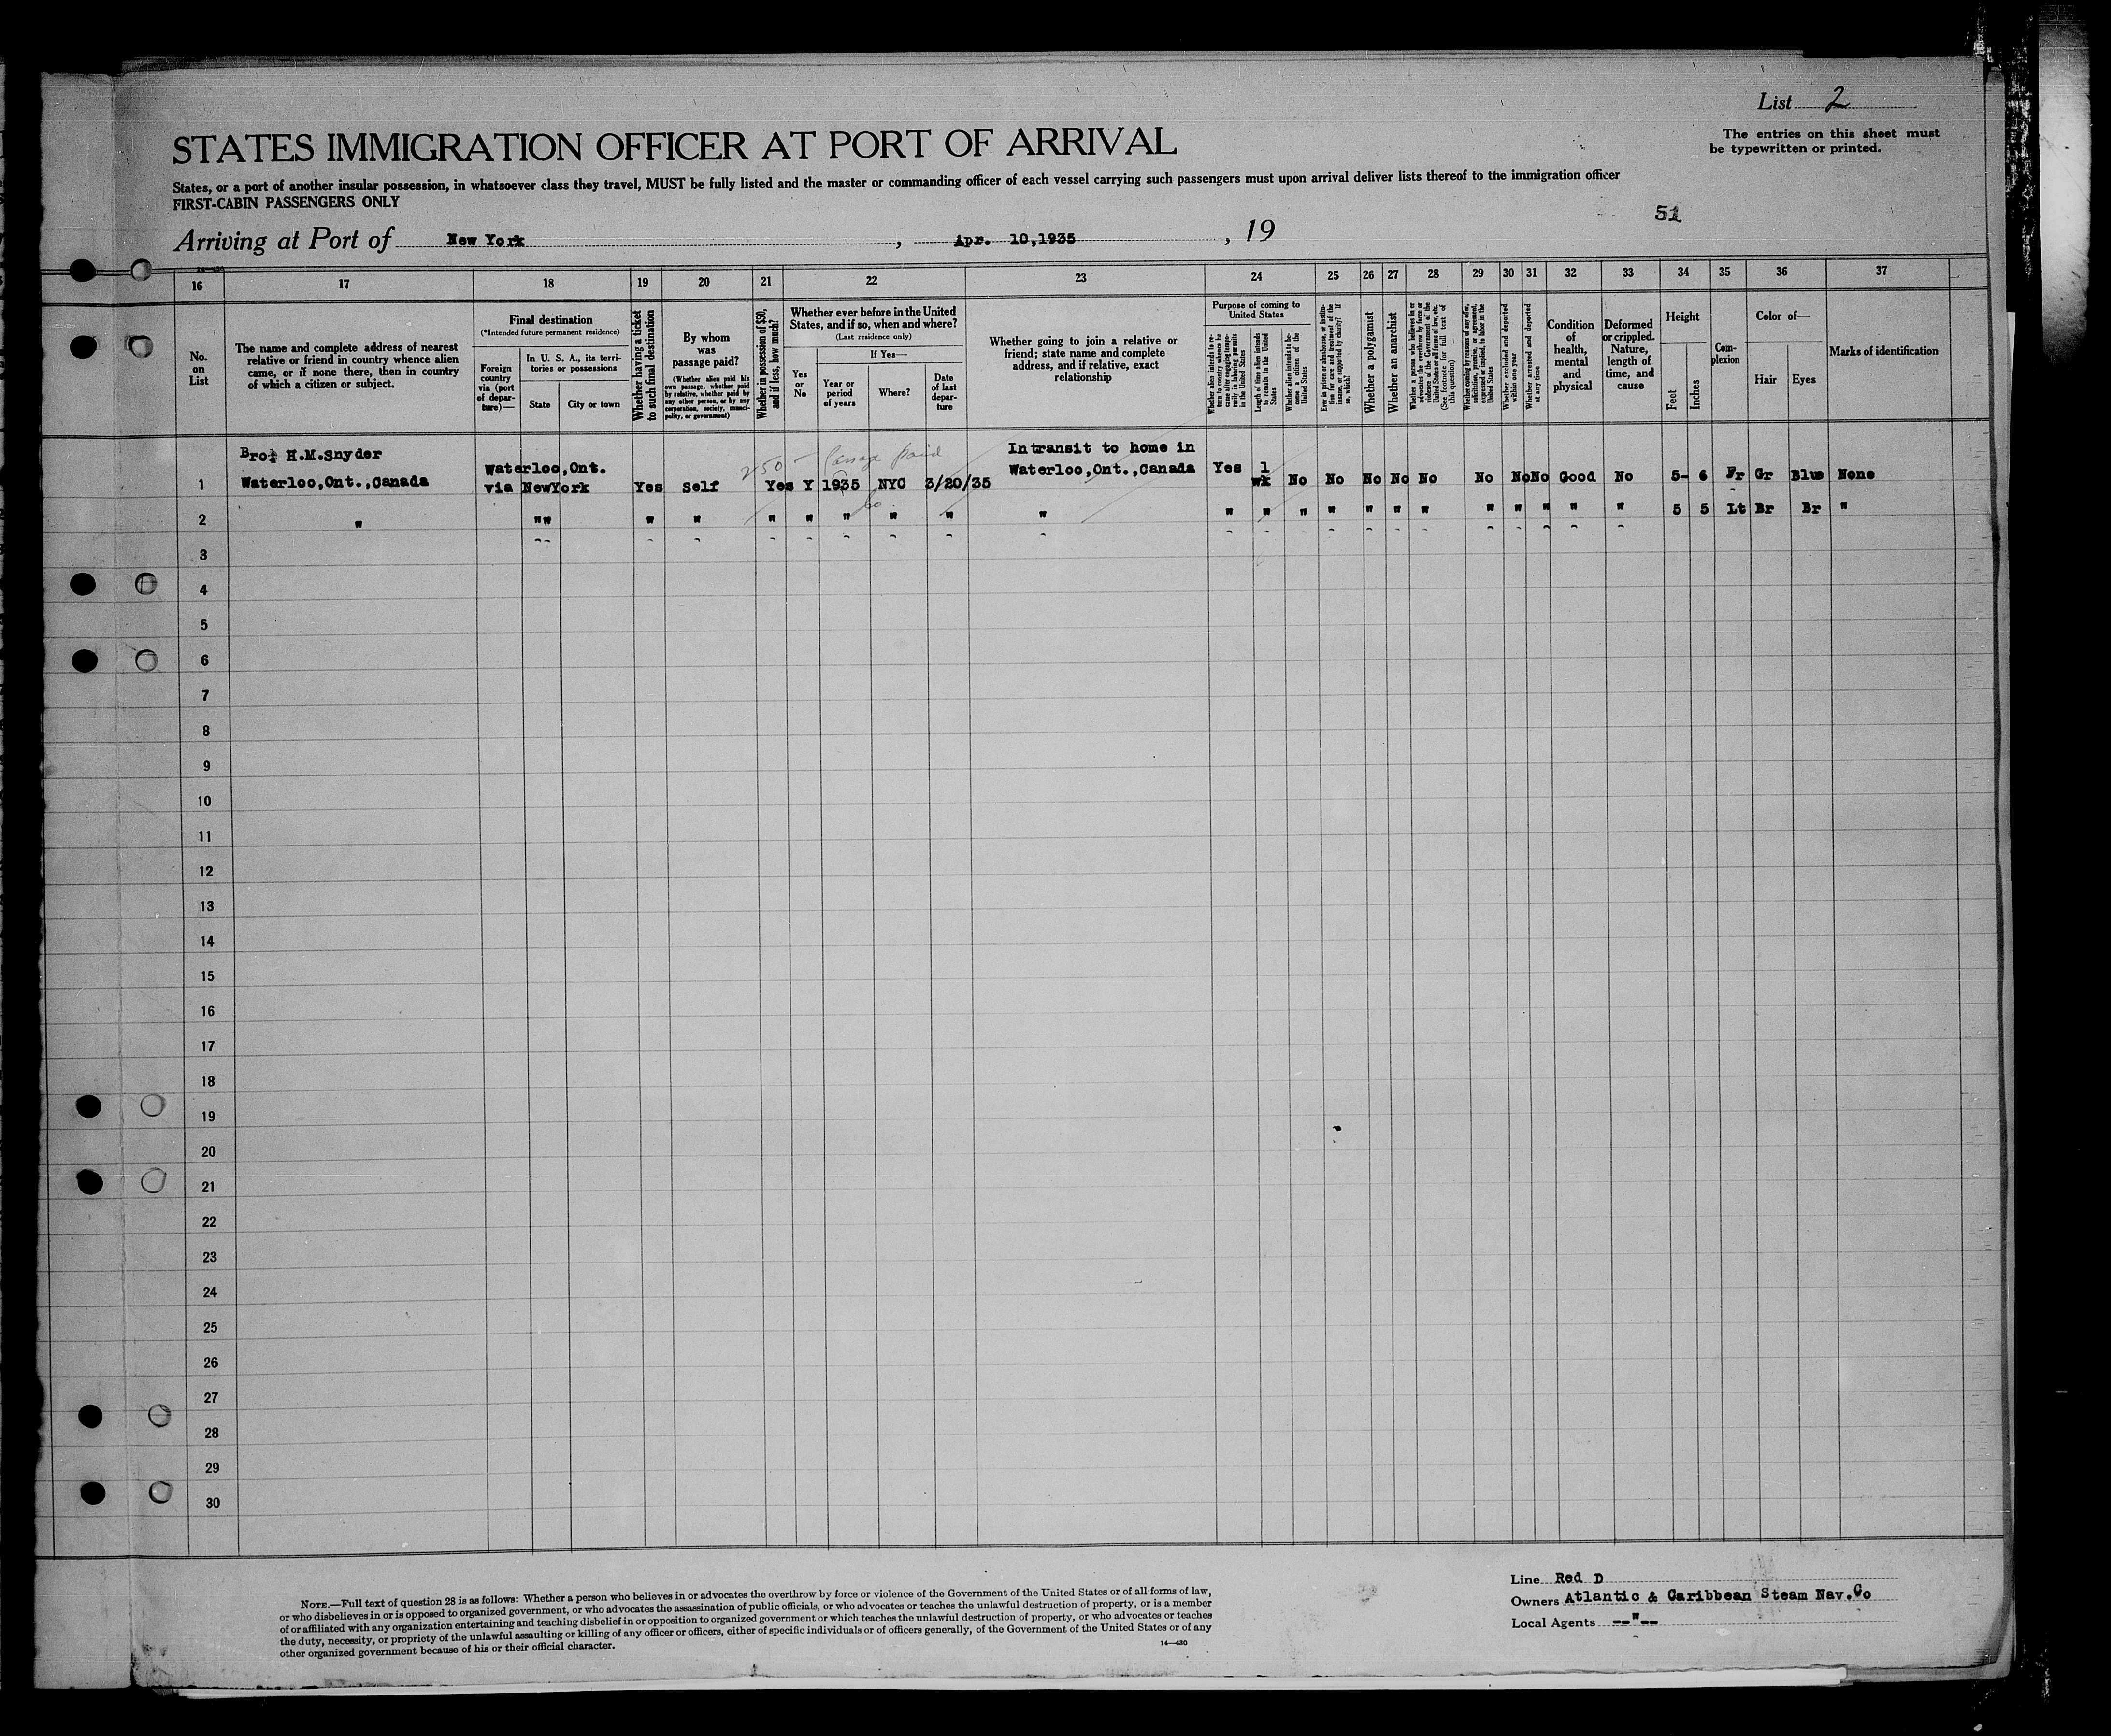 List 2
The entries on this sheet must
be typewritten or printed.
STATES IMMIGRATION OFFICER AT PORT OF ARRIVAL
States, or a port of another insular possession, in whatsoever class they travel, MUST be fully listed and the master or commanding officer of each vessel carrying such passengers must upon arrival deliver lists thereof to the immigration officer
FIRST-CABIN PASSENGERS ONLY
51
Arriving at Port of New York, Apr. 10,1935, 19
16 17 18 19 20 21 22 23 24 25 26 27 28 29 30 31 32 33 34 35 36 37
No.
on
List
The name and complete address of nearest
relative or friend in country whence alien
came, or if none there, then in country
of which a citizen or subject.
Final destination
(*Intended future permanent residence)
Foreign
country
via (port
of depar-
ture)—
In U. S. A., its terri-
tories or possessions
State
City or town
Whether having a ticket
to such final destination
By whom
was
passage paid?
(Whether alien paid his
own passage, whether paid
by relative, whether paid by
any other person, or by any
corporation, society, munici-
pality, or government)
Whether in possession of $50,
and if less, how much?
Whether ever before in the United
States, and if so, when and where?
(Last residence only)
Yes
or
No
If Yes—
Year or
period
of years
Where?
Date
of last
depar-
ture
Whether going to join a relative or
friend; state name and complete
address, and if relative, exact
relationship
Purpose of coming to
United States
Whether alien intends to re-
turn to country whence he
came after engaging tempo-
rarily in laboring pursuits
in the United States
Length of time alien intends
to remain in the United
States
Whether alien intends to be-
come a citizen of the
United States
Ever in prison or almshouse, or institu-
tion for care and treatment of the
insane, or supported by charity? If
so, which?
Whether a polygamist
Whether an anarchist
Whether a person who believes in or
advocates the overthrow by force or
violence of the Government of the
United States or all forms of law, etc.
(See footnote for full text of
this question)
Whether coming by reason of any offer,
solicitation, promise, or agreement,
expressed or implied, to labor in the
United States
Whether excluded and deported
within one year
Whether arrested and deported
at any time
Condition
of
health,
mental
and
physical
Deformed
or crippled.
Nature,
length of
time, and
cause
Height
Feet
Inches
Com-
plexion
Color of—
Hair
Eyes
Marks of identification
250- Passage paid
Bro: H.M.Snyder Waterloo,Ont. Intransit to home in
1 Waterloo,Ont.,Canada via NewYork Yes Self Yes Y 1935 NYC 3/20/35 Waterloo,Ont.,Canada Yes 1 wk No No No No No No No No Good No 5- 6 Fr Gr Blue None
2 " "" " " " " " " " " " " " " " " " " " " " " 5 5 Lt Br Br "
3
4
5
6
7
8
9
10
11
12
13
14
15
16
17
18
19
20
21
22
23
24
25
26
27
28
29
30
NOTE.—Full text of question 28 is as follows: Whether a person who believes in or advocates the overthrow by force or violence of the Government of the United States or of all forms of law,
or who disbelieves in or is opposed to organized government, or who advocates the assassination of public officials, or who advocates or teaches the unlawful destruction of property, or is a member
of or affiliated with any organization entertaining and teaching disbelief in or opposition to organized government or which teaches the unlawful destruction of property, or who advocates or teaches
the duty, necessity, or propriety of the unlawful assaulting or killing of any officer or officers, either of specific individuals or of officers generally, of the Government of the United States or of any
other organized government because of his or their official character.
14—430
Line Red D
Owners Atlantic & Caribbean Steam Nav.Co
Local Agents --"--